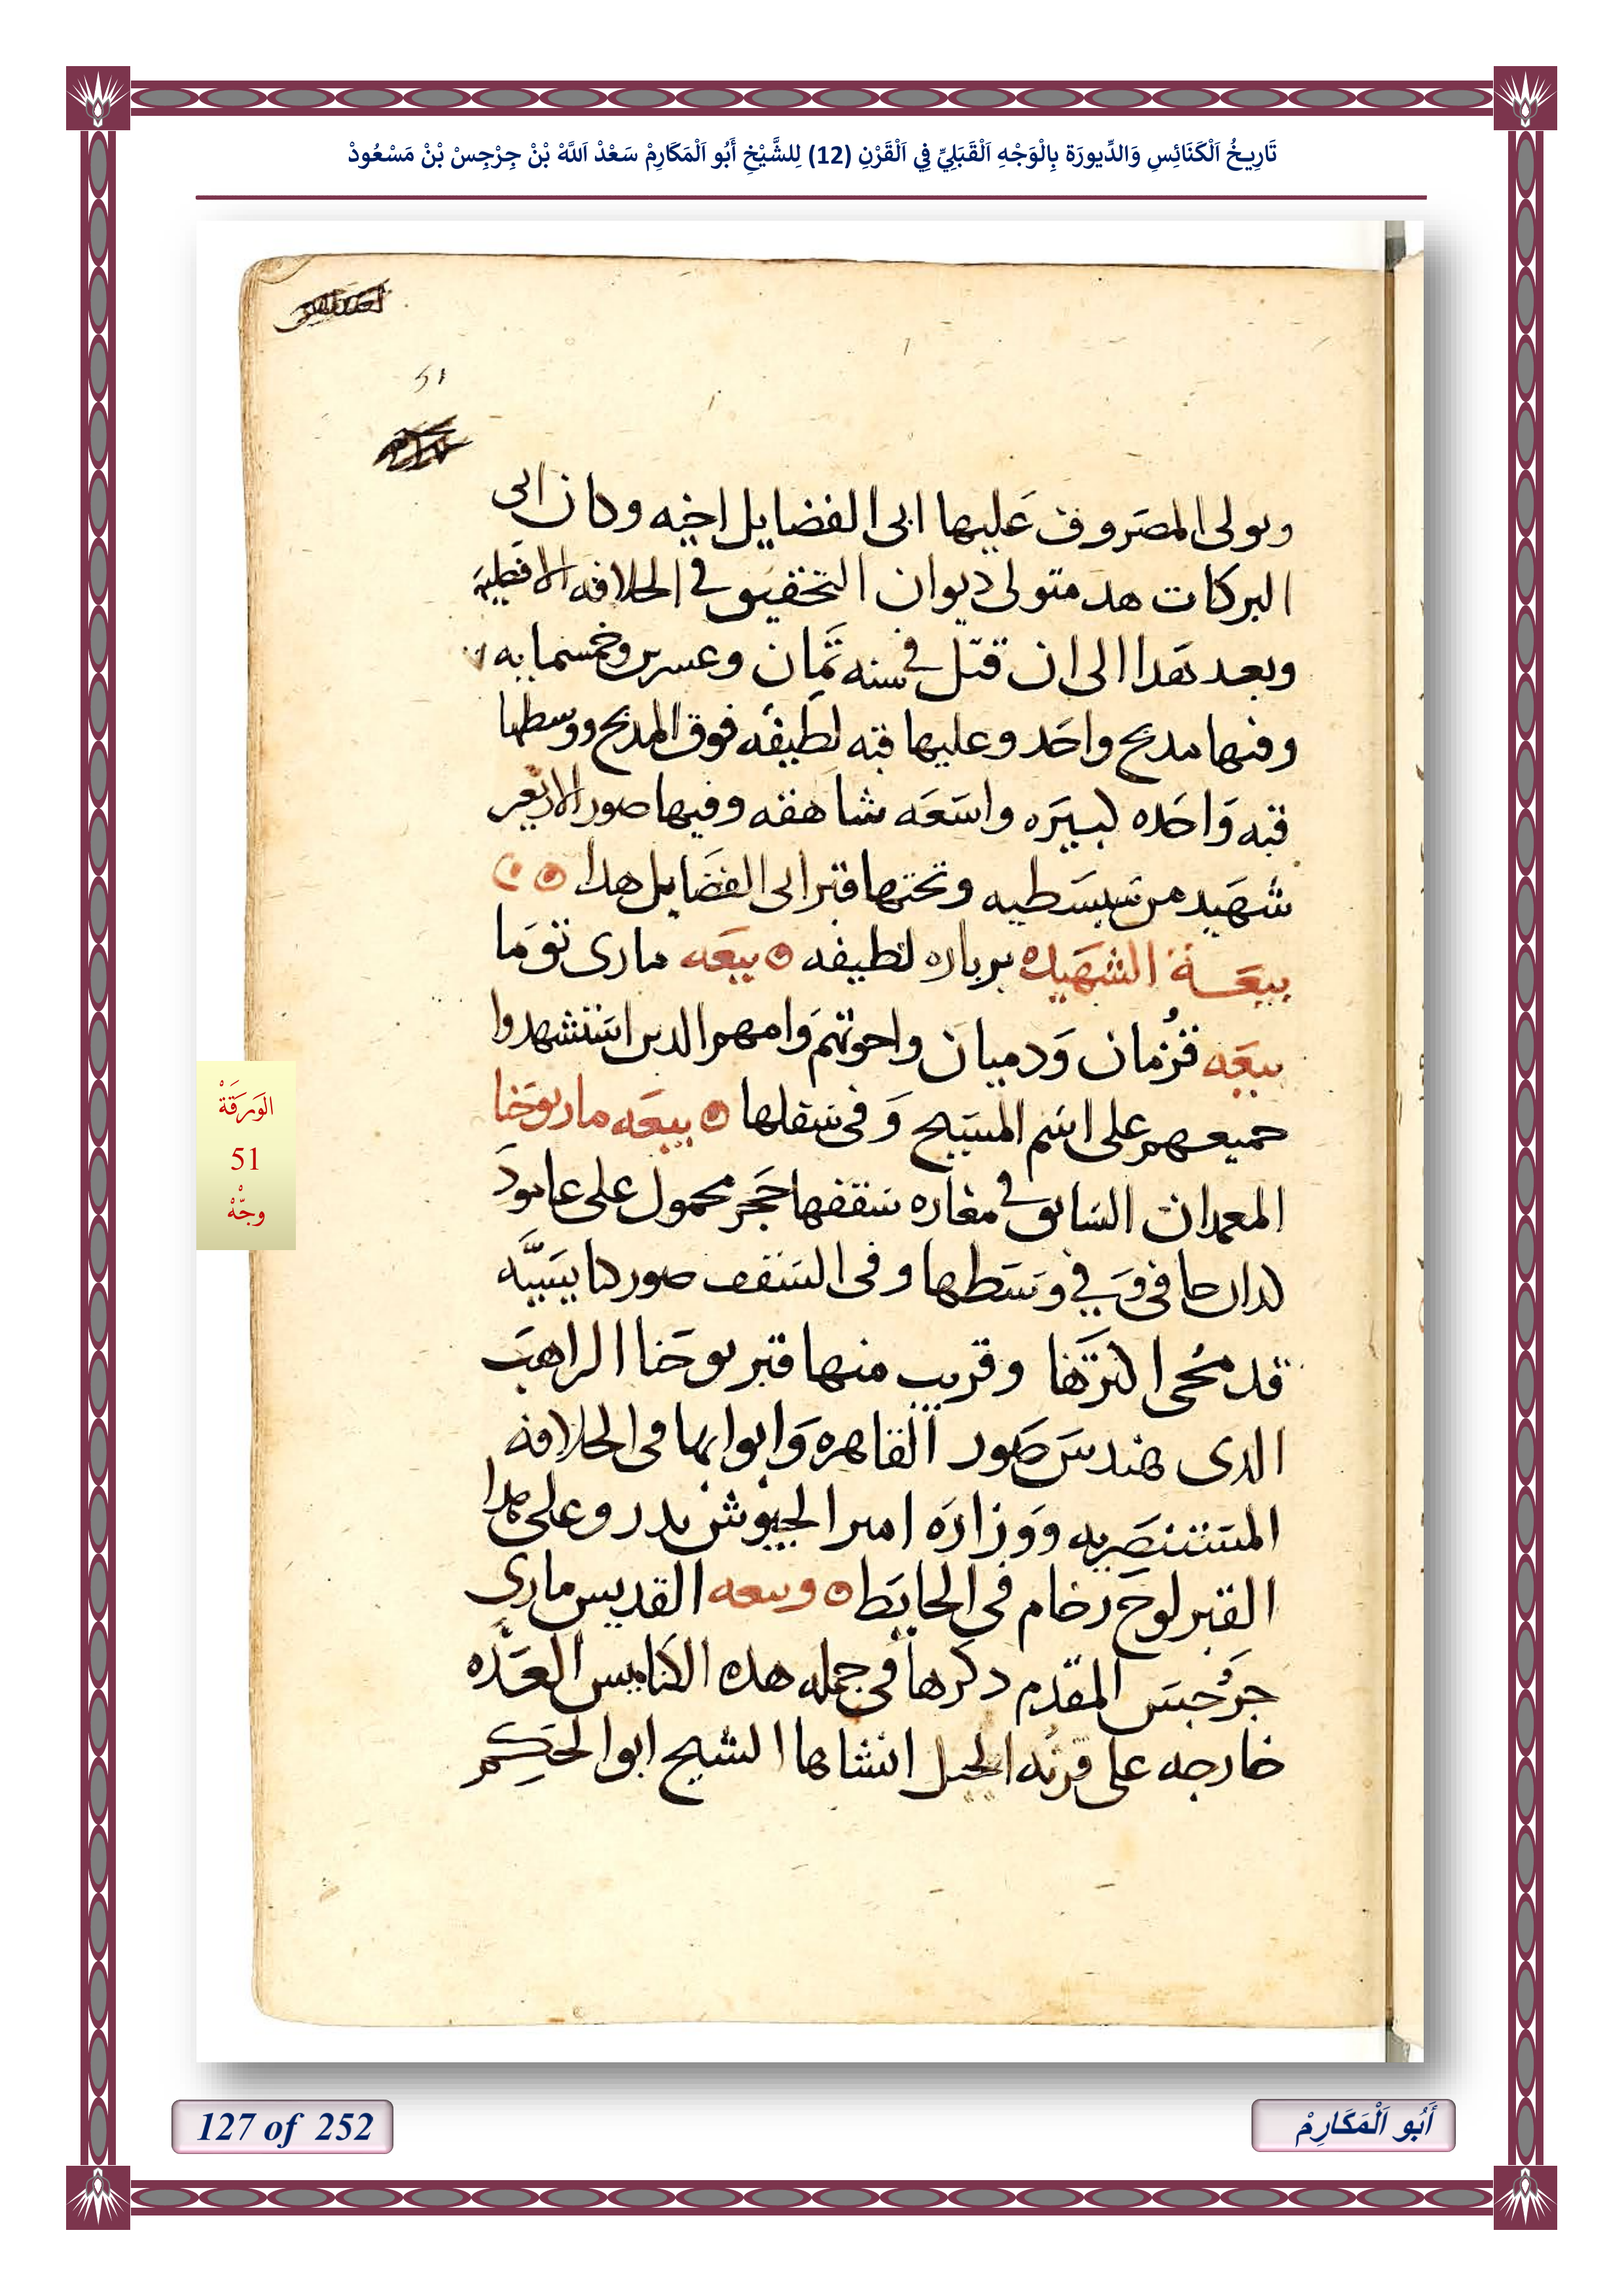 تَارِيخُ اَلْكَنَائِسِ وَالدِّيورَة بِالْوَجْهِ اَلْقَبَلِيِّ فِي اَلْقَرْنِ (12) لِلشَّيْخِ أَبُو اَلْمَكَارِمْ سَعْدْ اَللَّهْ بْنْ جِرْجِسْ بْنْ مَسْعُودْ
51
وىولى المصَروف عَليها ابى الفضايل اخيه وكان ابى
البركات هدا متولى ديوان التحقيق في الخلافه
وبعد هَدا الى ان قتل في سنه ثمَان وعسرين وخمسمايه
وفيها مدبح واحَد وعليها قبه لطيفه فوق المدبح ووسطها
قبه وَاحَده كبيَره واسَعَه شاهقه وفيها صور الاربعين
شهَيد من سَبسَطيه وتحتها قبر ابى الفضَايل هدا
بيعَة الشهَيده بربارة لطيفه بيعَه مارى توَما
بيعَه قزُمان وَدميان واخوتهم وَامهم الدين استشهدوا
جميعهم على اسَم المسَيح وَفى سَفلها بيعَه مار يوحَنا
المعمدان السَابق في مغاره سَقفها حَجَر محمول على عامود
كدان حافى وَفي وسَطها وفى السَقف صور كنايسَيَّه
قد مُحى اكثرَهَا وقريب منها قبر يوحَنا الراهبَ
الدى هندسَ صَور القاهره وَابوابها فى الخلافه
المسَتنصَريه ووزارَه امير الجيوش بدر وعلى هدا
القبر لوح رخام فى الحايَط وبيعه القديس مارى
جرَجسَ المقدم دكرها فى جمله هده الكنايس العَدّه
خارجه على قرنه الجبل انشاها الشيخ ابوا لحَكيم
الوَرَقَةْ
51
وجْهْ
127 of 252
أَبُو اَلْمَكَارِمْ